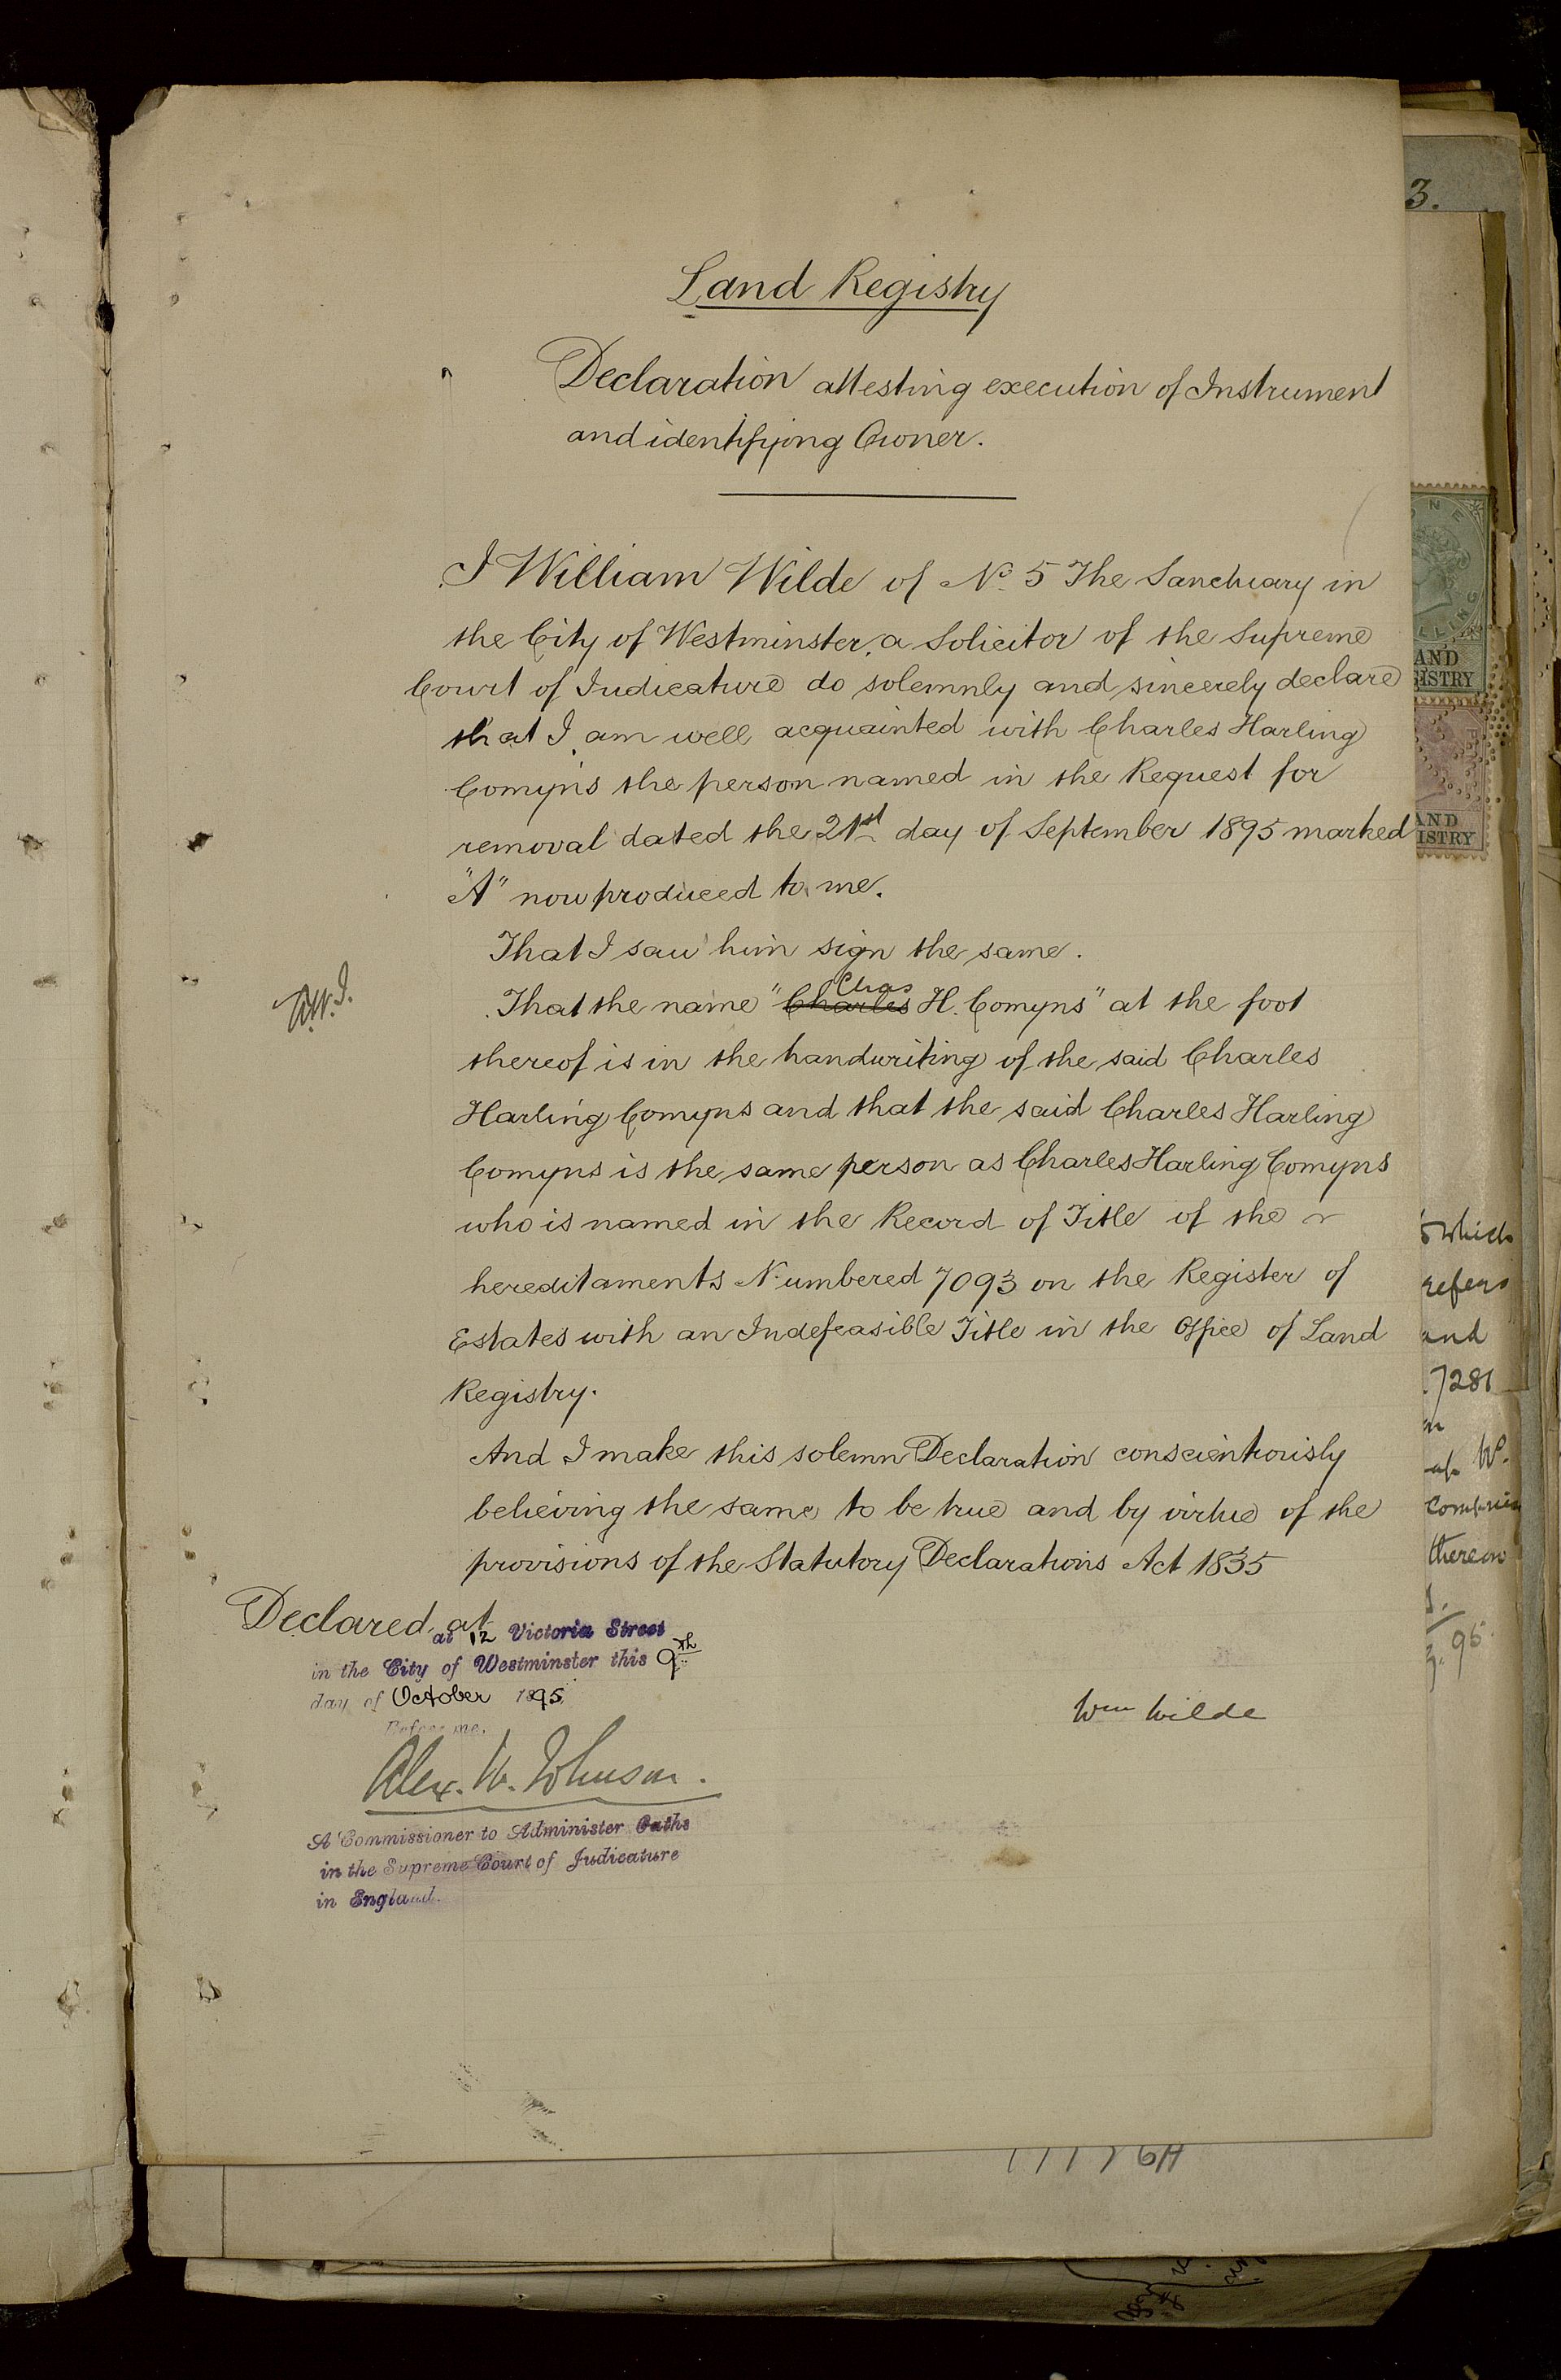 Land Registry
Declaration attesting execution of Instrument
and identifying Owner.
I William Wilde of No. 5 The Sanctuary in
the City of Westminster, a Solicitor of the Supreme
Court of Judicature do solemnly and sincerely declare
that I am well acquainted with Charles Harling
Comyns the person named in the Request for
removal dated the 21st day of September 1895 marked
"A" now produced to me.
That I saw him sign the same.
Chas
That the name "Charles H. Comyns" at the foot
thereof is in the handwriting of the said Charles
Harling Comyns and that the said Charles Harling
Comyns is the same person as Charles Harling Comyns
who is named in the Record of Title of the
hereditaments Numbered 7093 on the Register of
Estates with an Indefeasible Title in the Office of Land
Registry.
And I make this solemn Declaration conscientiously
believing the same to be true and by virtue of the
provisions of the Statutory Declarations Act 1835
Declared at
at 12 Victoria Street
in the City of Westminster this 9th
day of October 1895
Before me.
Wm Wilde
Alex. W. Johnson.
A Commissioner to Administer Oaths
in the Supreme Court of Judicature
in England.
3.
ONE
AND
GISTRY
AND
ISTRY
which
refers
and
7281
W.
thereon
95.